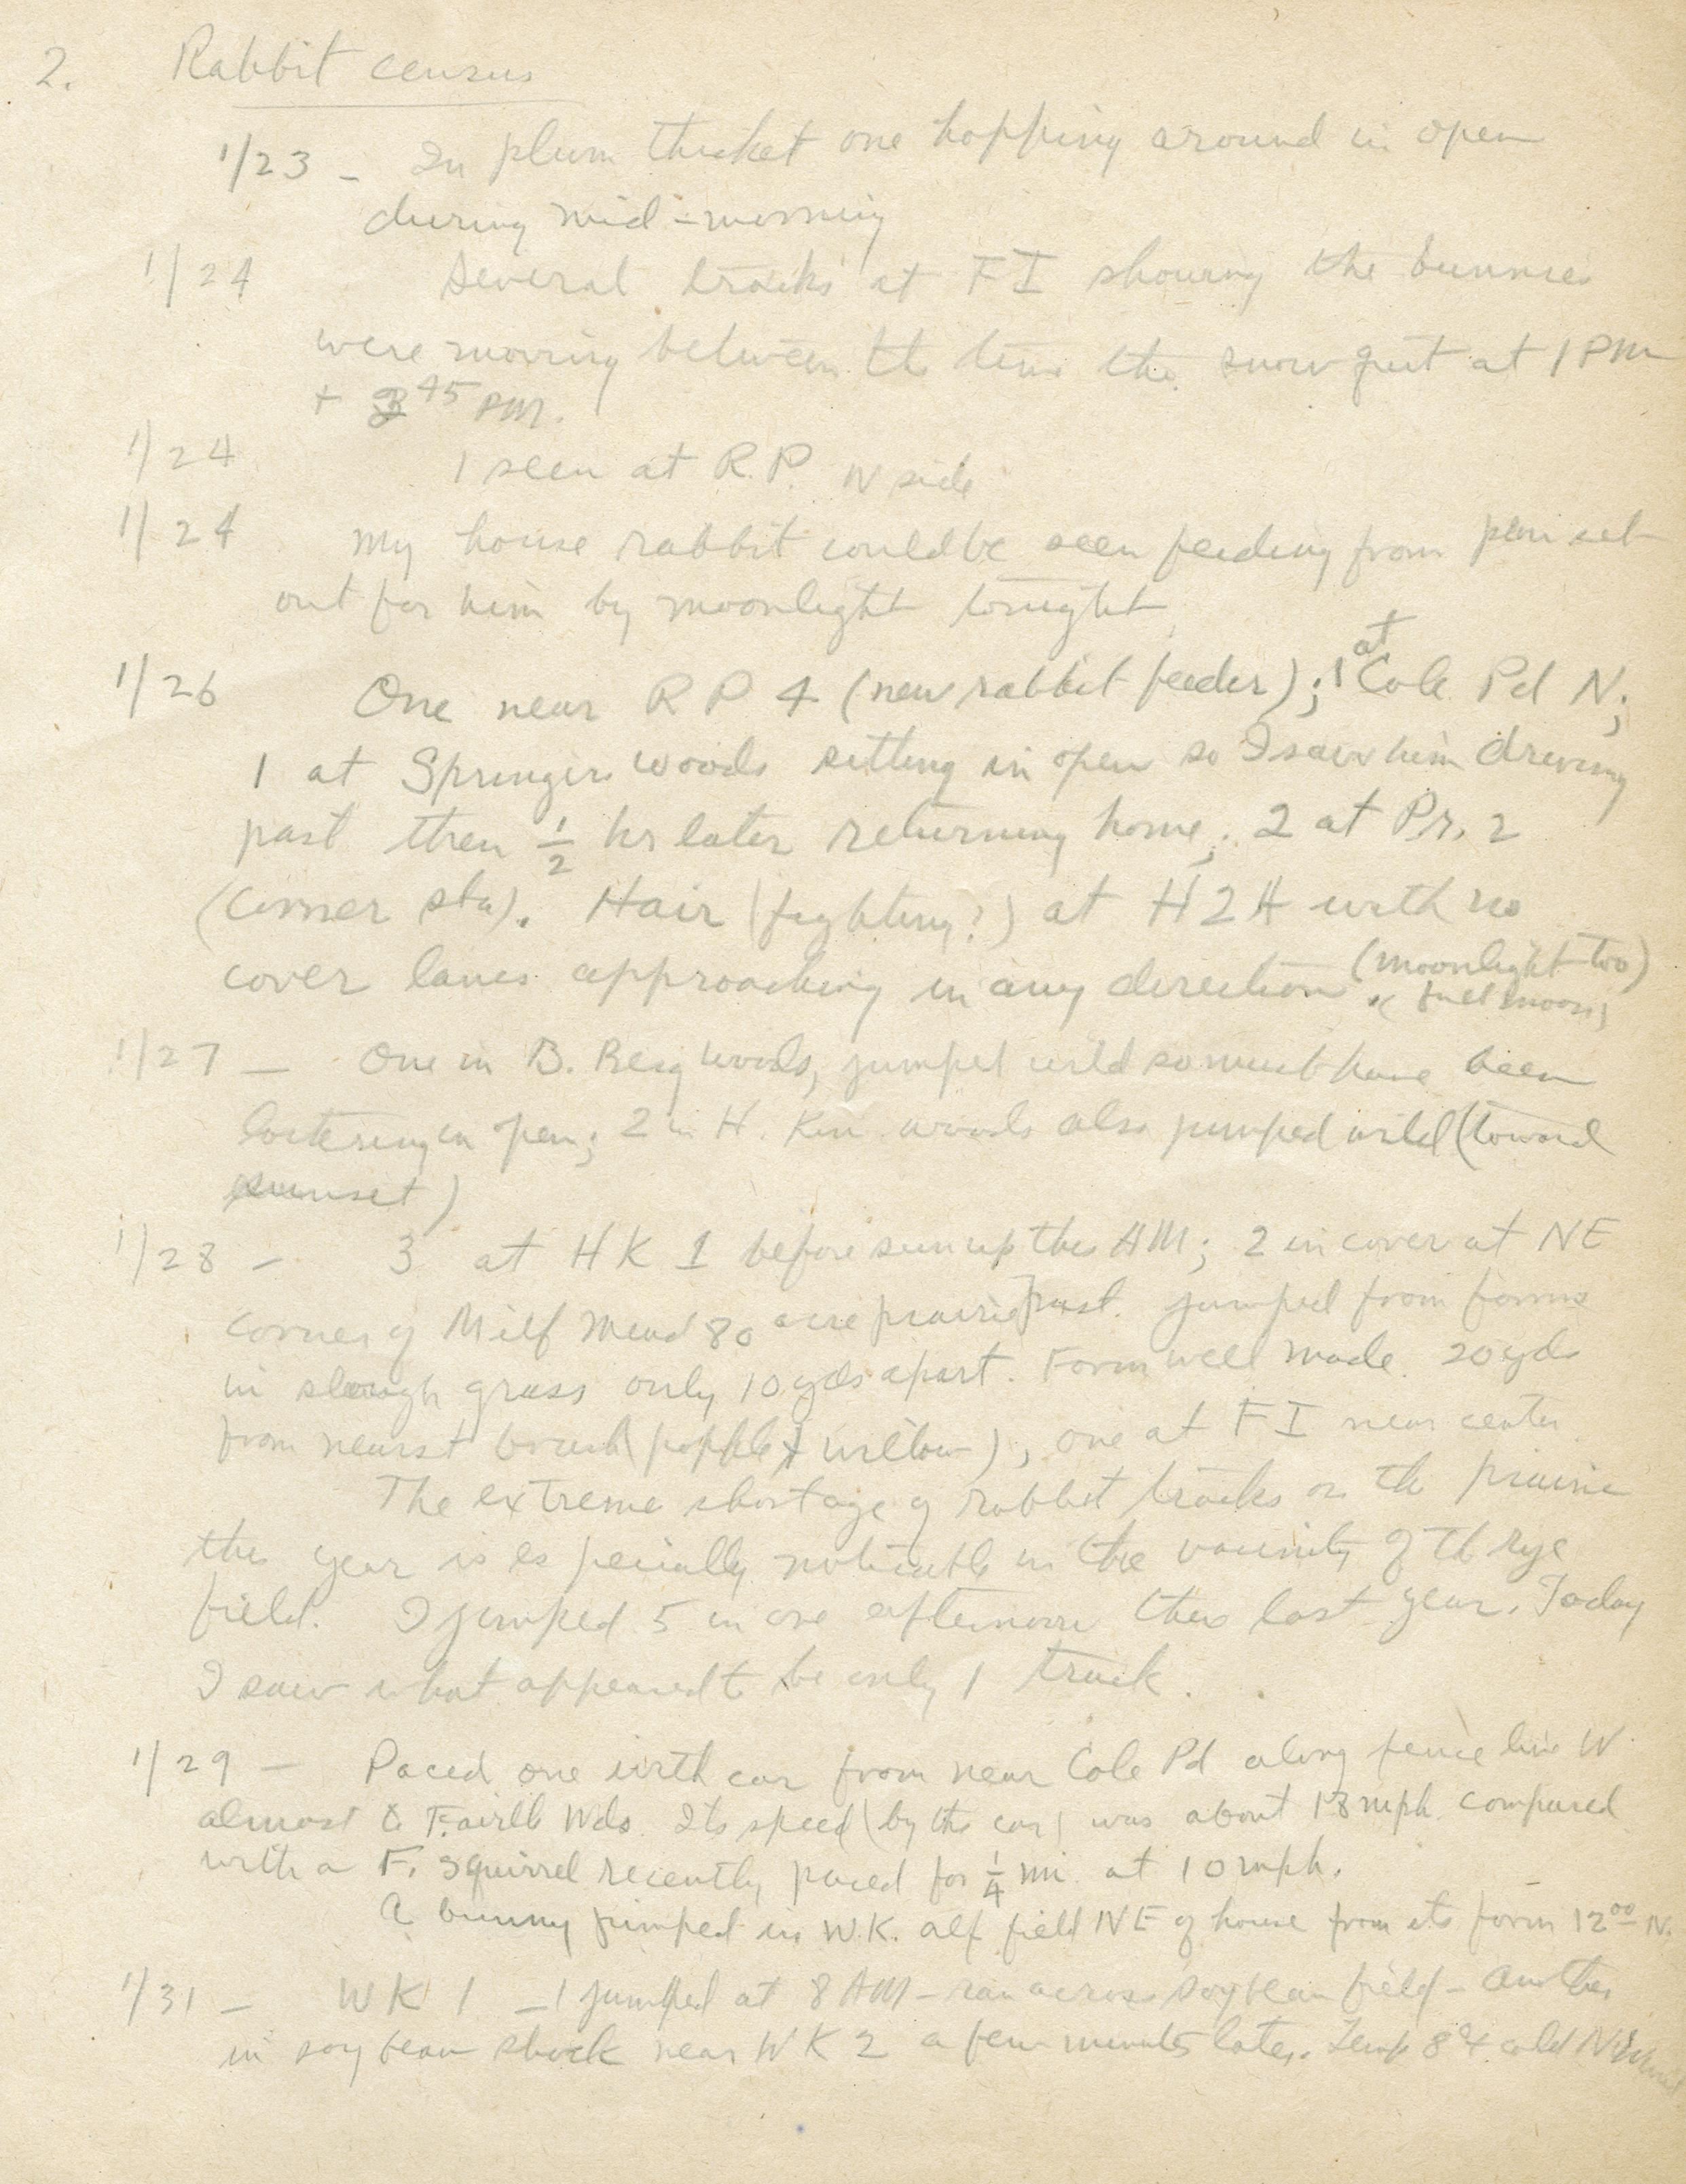 2. Rabbit census
1/23 - In plum thicket one hopping around in open
during mid-morning
1/24 Several tracks at F I showing the bunnies
were moving between the time the snow quit at 1 PM
+ 3 45 PM.
1/24 1 seen at R.P. N side
1/24 My house rabbit could be seen feeding from pan set
out for him by moonlight tonight
1/26 One near R P 4 (new rabbit feeder); 1 at Cole Pd N;
1 at Springers woods sitting in open so I saw him driving
past then 1/2 hr later returning home; 2 at Pr. 2
(corner sta). Hair (fighting?) at H 2 A with no
cover lanes approaching in any direction. (moonlight too)
(full moon)
1/27 - One in B. Berg woods, jumped wild so must have been
loitering in open; 2 in H. Kn. woods also jumped wild (toward
sunset)
1/28 - 3 at H K 1 before sun up this AM; 2 in cover at NE
corner of Milf Mead 80 acre prairie past. jumped from forms
in slough grass only 10 yds apart. Form well made 20 yds
from nearst brush (popple + willow), one at F I near center
The extreme shortage of rabbit tracks on the prairie
this year is especially noticable in the vacinity of th rye
field. I jumped 5 in one afternoon there last year. Today
I saw what appeared to be only 1 track.
1/29 - Paced one with car from near Cole Pd along fence line W
almost to Wds. Its speed (by the car) was about 18 mph compared
with a F. squirrel recently paced for 1/4 mi at 10 mph.
A bunny jumped in W.K. alf field NE of house from its form 12 00 N.
1/31 - W K 1 - 1 jumped at 8 AM - ran across soybean field - another
in soy bean shock near W K 2 a few minutes later. Temp 8° + cold